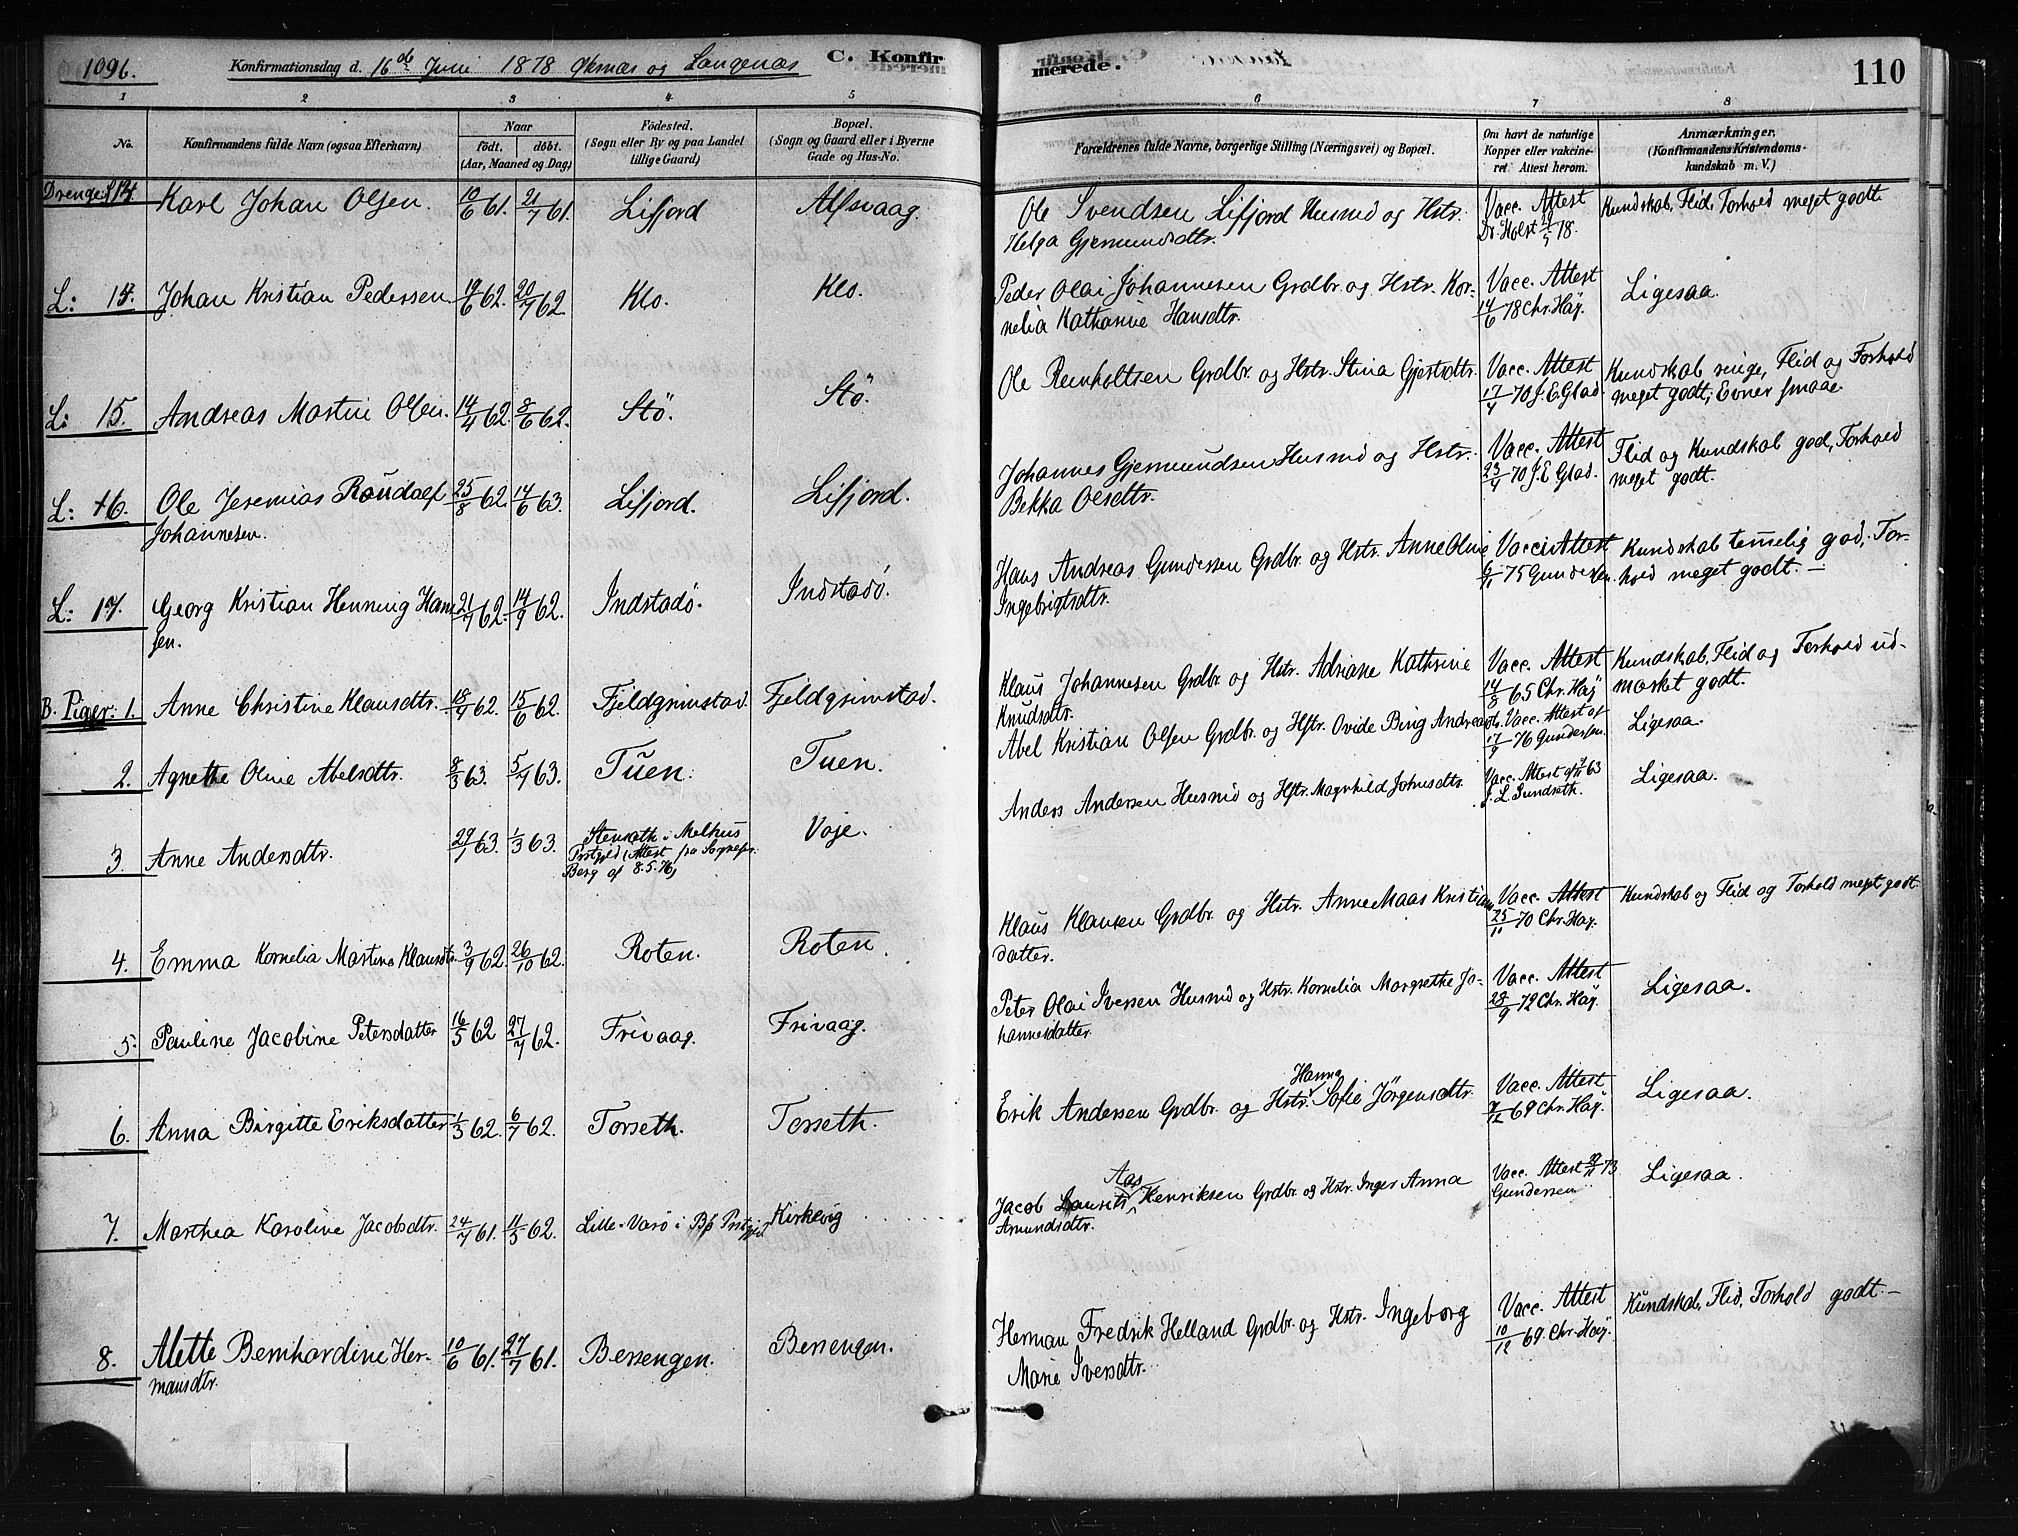 1096.
Konfirmationsdag d. 16de Juni 1878 Øksnæs og Langenæs
C. Konfirmerede.
110
1 2 3 4 5 6 7 8
No.
Konfirmandens fulde Navn (ogsaa Efternavn)
Naar
født. døbt.
(Aar, Maaned og Dag)
Fødested.
(Sogn eller By og paa Landet
tillige Gaard)
Bopæl.
(Sogn og Gaard eller i Byerne
Gade og Hus-No.
Forældrenes fulde Navne, borgerlige Stilling (Næringsvei) og Bopæl.
Om havt de naturlige
Kopper eller vaccine-
ret Attest herom.
Anmærkninger.
(Konfirmandens Kristendoms-
kundskab m. V.)
Drenge: Karl Johan Olsen. 10/6 61. 21/7 61. Lifjord Alsvaag.
Ole Svendsen Lifjord Husmd og Hstr.
Helga Gjermundsdtr.
Vacc. Attest
Dr. Holst 78.
Kundskab, Flid, Forhold meget godt.
L: 14. Johan Kristian Pedersen 19/6 62. 20/7 62 Klo Klo.
Peder Olai Johannesen Grdbr. og Hstr. Kor-
nelia Kathanie Hansdtr.
Vacc. Attest
14/6 78 Chr. Høy.
Ligesaa.
L: 15. Andreas Martin Olsen. 14/4 62. 8/6 62. Stö. Stö.
Ole Reinholtsen Grdbr. og Hstr. Stina Gjertsdtr.
Vacc. Attest
17/4 70 J. E. Glad.
Kundskab ringe, Flid og Forhold
meget godt; Evner smaae.
L: 16. Ole Jeremias Raudolf 25/8 62. 14/6 63. Lifjord. Lifjord.
Johannesen.
Johannes Gjermundsen Husmd og Hstr.
Bekka Olsdtr.
Vacc. Attest
23/4 70 J. E. Glad.
Flid og Kundskab god, Forhold
meget godt.
L: 17. Georg Kristian Henning Han- 21/7 62. 14/9 62. Indstadø. Indstadø.
sen.
Hans Andreas Gundersen Grdbr. og Hstr. Anne Oline
Ingebrigtsdtr.
Vacc. Attest
6/11 75 Gundersen.
Kundskab temmelig god, For-
hold meget godt.
B. Piger: 1. Anne Christine Klausdtr. 18/4 62. 15/6 62. Fjeldgrimstad. Fjeldgrimstad.
Klaus Johannesen Grdbr. og Hstr. Adriane Kathrine
Knudsdtr.
Vacc. Attest
14/8 65 Chr. Høy
Kundskab, Flid og Forhold ud-
mærket godt.
2. Agnethe Oline Abelsdtr. 8/3 63. 5/7 63. Tuen. Tuen.
Abel Kristian Olsen Grdbr. og Hstr. Ovide Bing Andreasdtr.
Vacc. Attest af
17/9 76 Gundersen.
Ligesaa.
3. Anne Andersdtr. 29/1 63. 1/3 63. Stensæth i Melhus Voje.
Prstgjeld (Attest fra Sognepr.
Berg af 8.5.76)
Anders Andersen Husmd og Hstr. Magnhild Johnsdtr.
Vacc. Attest 63
J. L. Sundseth.
Ligesaa.
4. Emma Kornelia Martine Klausdtr. 3/9 62. 26/10 62. Roten. Roten.
Klaus Klausen Grdbr. og Hstr. Anne Maas Kristians
datter.
Vacc. Attest
25/11 70 Chr. Høy.
Kundskab og Flid og Forhold meget godt.
5. Pauline Jacobine Petersdatter 16/5 62 27/7 62. Frivaag. Frivaag.
Peter Olai Iversen Husmd og Hstr. Kornelia Margrethe Jo-
hannesdatter.
Vacc. Attest
28/9 72 Chr. Høy.
Ligesaa.
6. Anna Birgitte Eriksdatter 1/5 62. 6/7 62. Torseth. Torseth.
Erik Andersen Grdbr. og Hstr. Hanna Sofie Jörgensdtr.
Vacc. Attest
7/12 69 Chr. Høy.
Ligesaa.
7. Marthea Karoline Jacobsdtr. 24/7 61. 11/5 62. Lille-Varø i Bø Prstgjld. Kirkevig
Jacob Aas Henriksen Grdbr. og Hstr. Inger Anna
Amundsdtr.
Vacc. Attest 73
Gundersen
Ligesaa.
8. Alette Bernhardine Her- 10/6 61. 27/7 61. Bersengen. Bersengen.
mansdtr.
Herman Fredrik Helland Grdbr. og Hstr. Ingeborg
Marie Iversdtr.
Vacc. Attest
10/12 69. Chr. Høy.
Kundskab, Flid, Forhold godt.